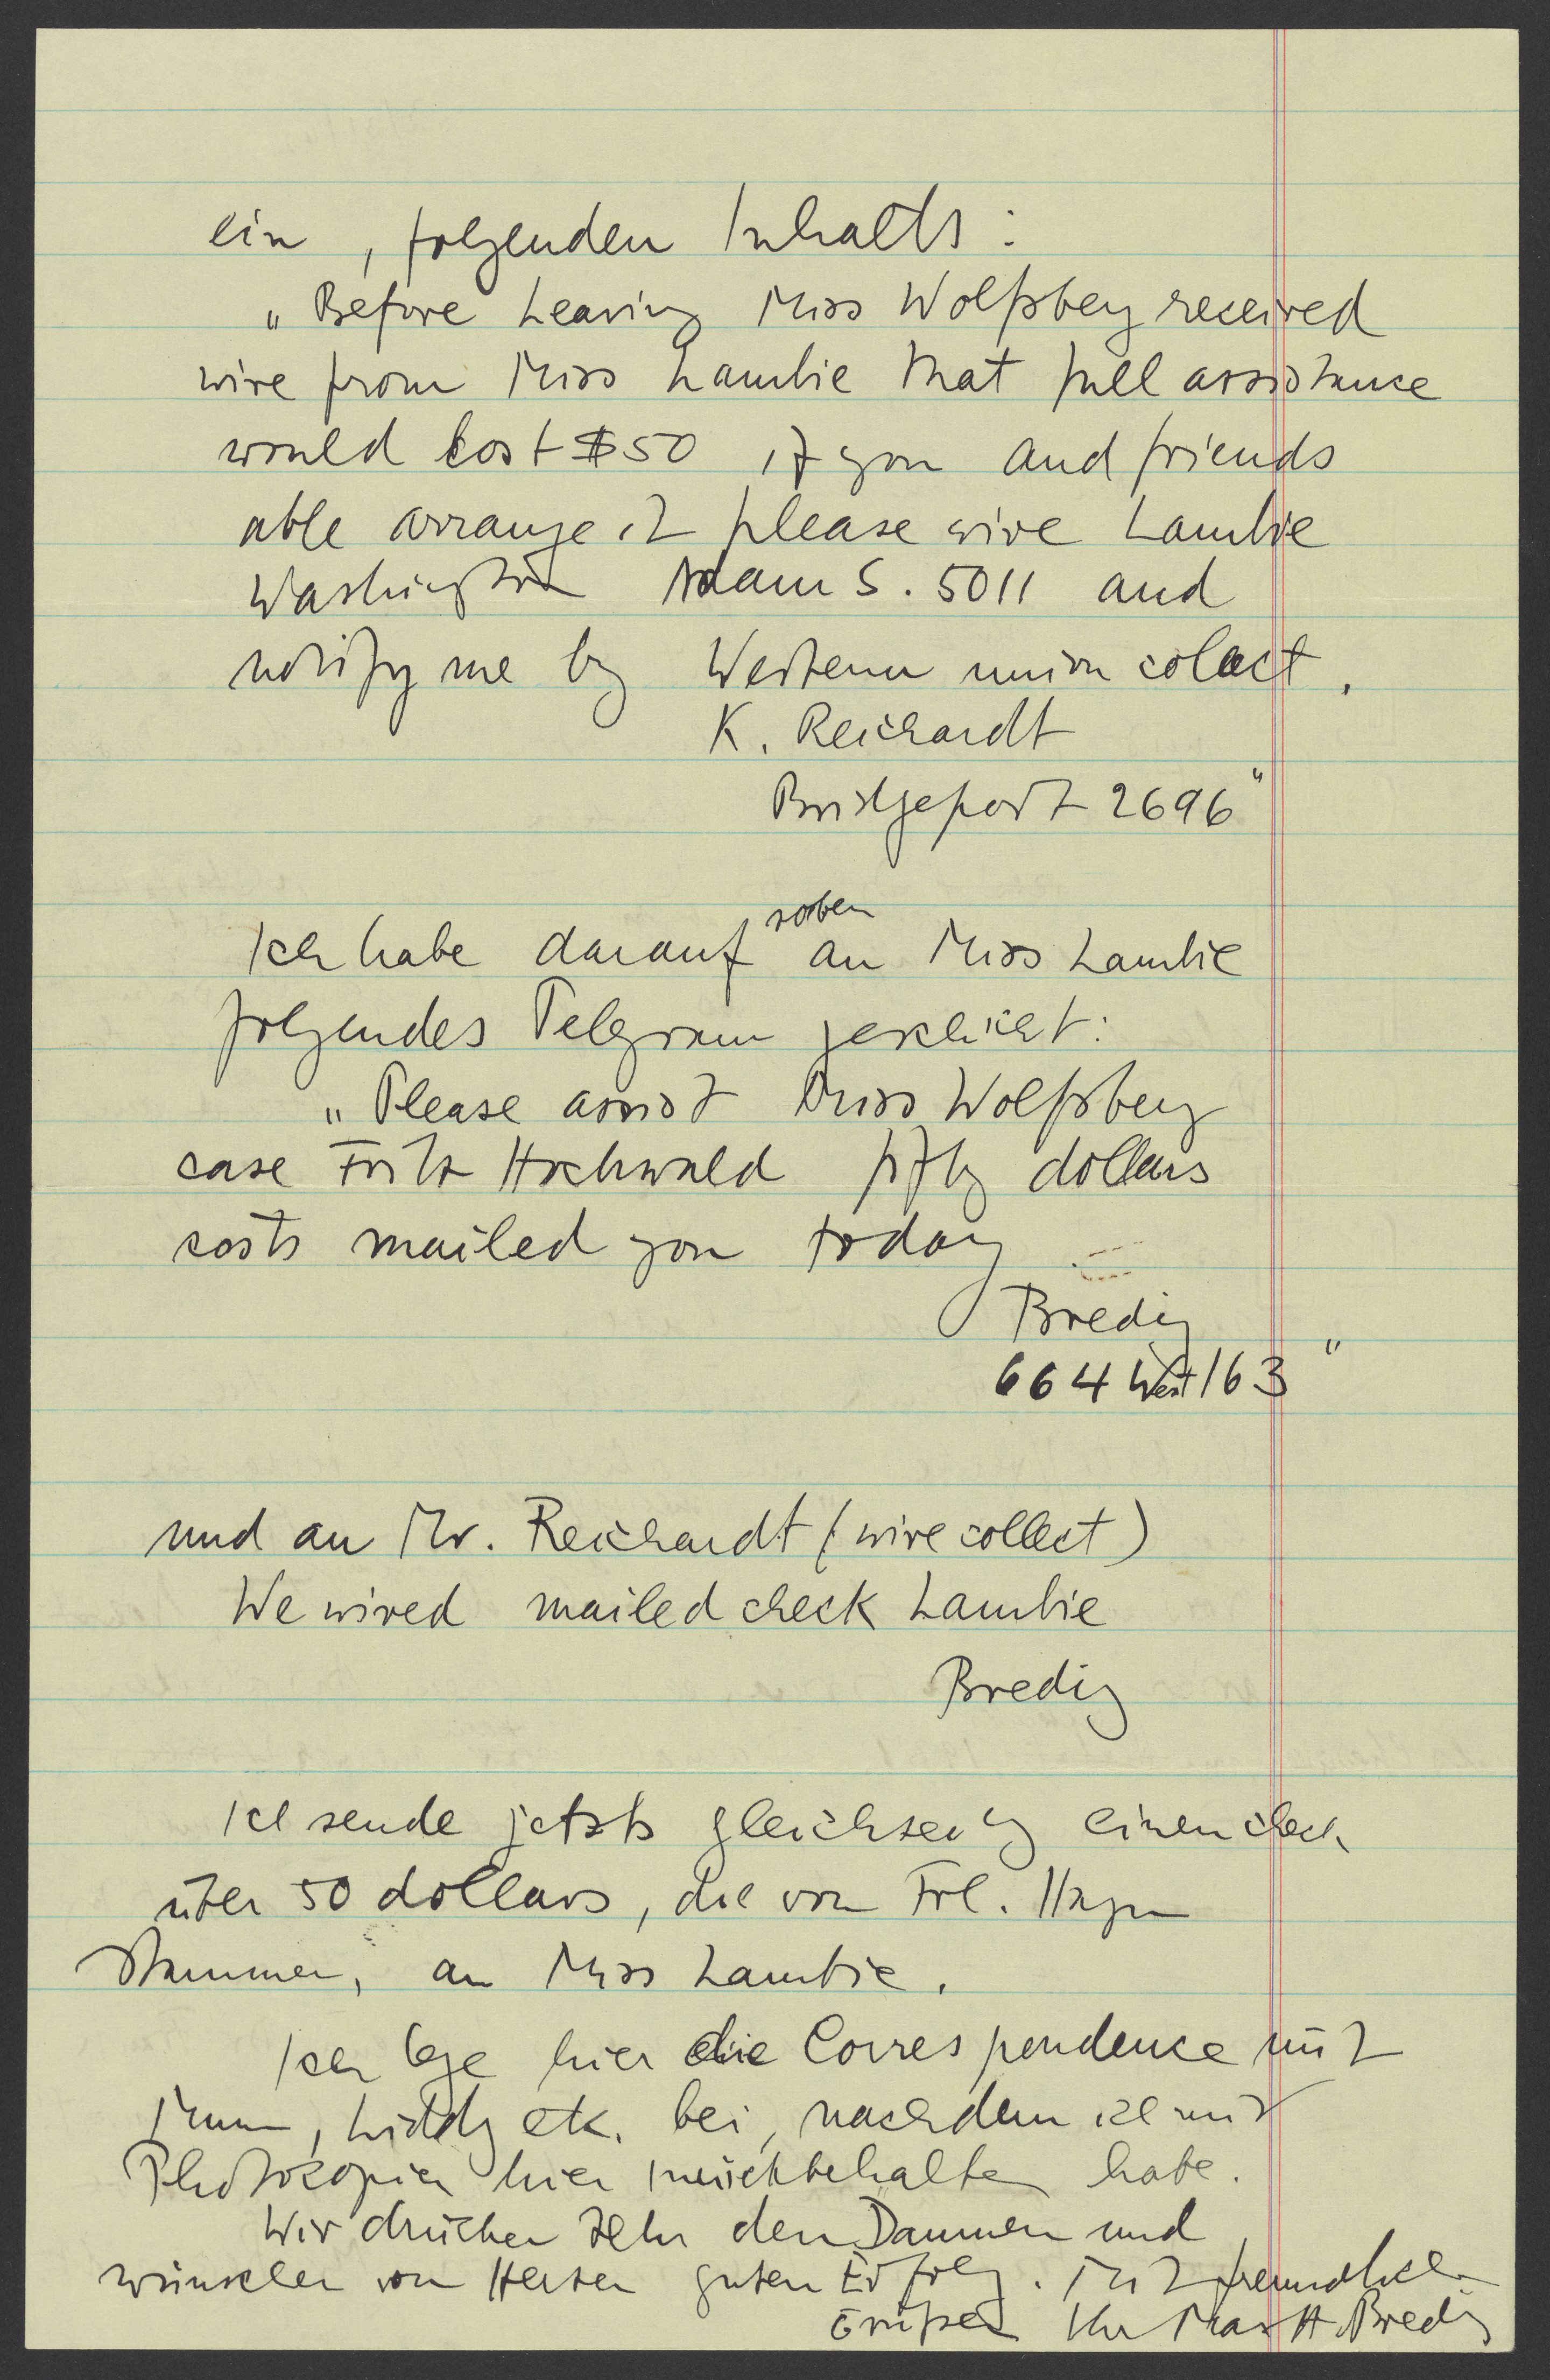 ein, folgenden Inhalts:
„Before leaving Miss Wolfsberg received
wire from Miss Lambie that full assistance
would cost $50 if you and friends
able arrange it please wire Lambie
Washington Adam S. 5011 and
notify me by Western union collect.
K. Reichardt
Bridgeport 2696"
soeben
Ich habe darauf an Miss Lambie
folgendes Telegram geschickt:
„Please assist Miss Wolfsberg
case Fritz Hochwald fifty dollars
costs mailed you today
Bredig
664 West 163"
und an Mr. Reichardt (wire collect)
We wired mailed check Lambie
Bredig
Ich sende jetzt gleichzeitig einen check
über 50 dollars, die von Frl.
stammen, an Miss Lambie.
Ich lege hier die Correspondence mit
etc. bei, nachdem ich mir
Photokopien hier zurückbehalten habe.
Wir drücken sehr den Daumen und
wünschen von Herzen guten Erfolg. Mit freundlichen
Grüßen Ihr Max A. Bredig